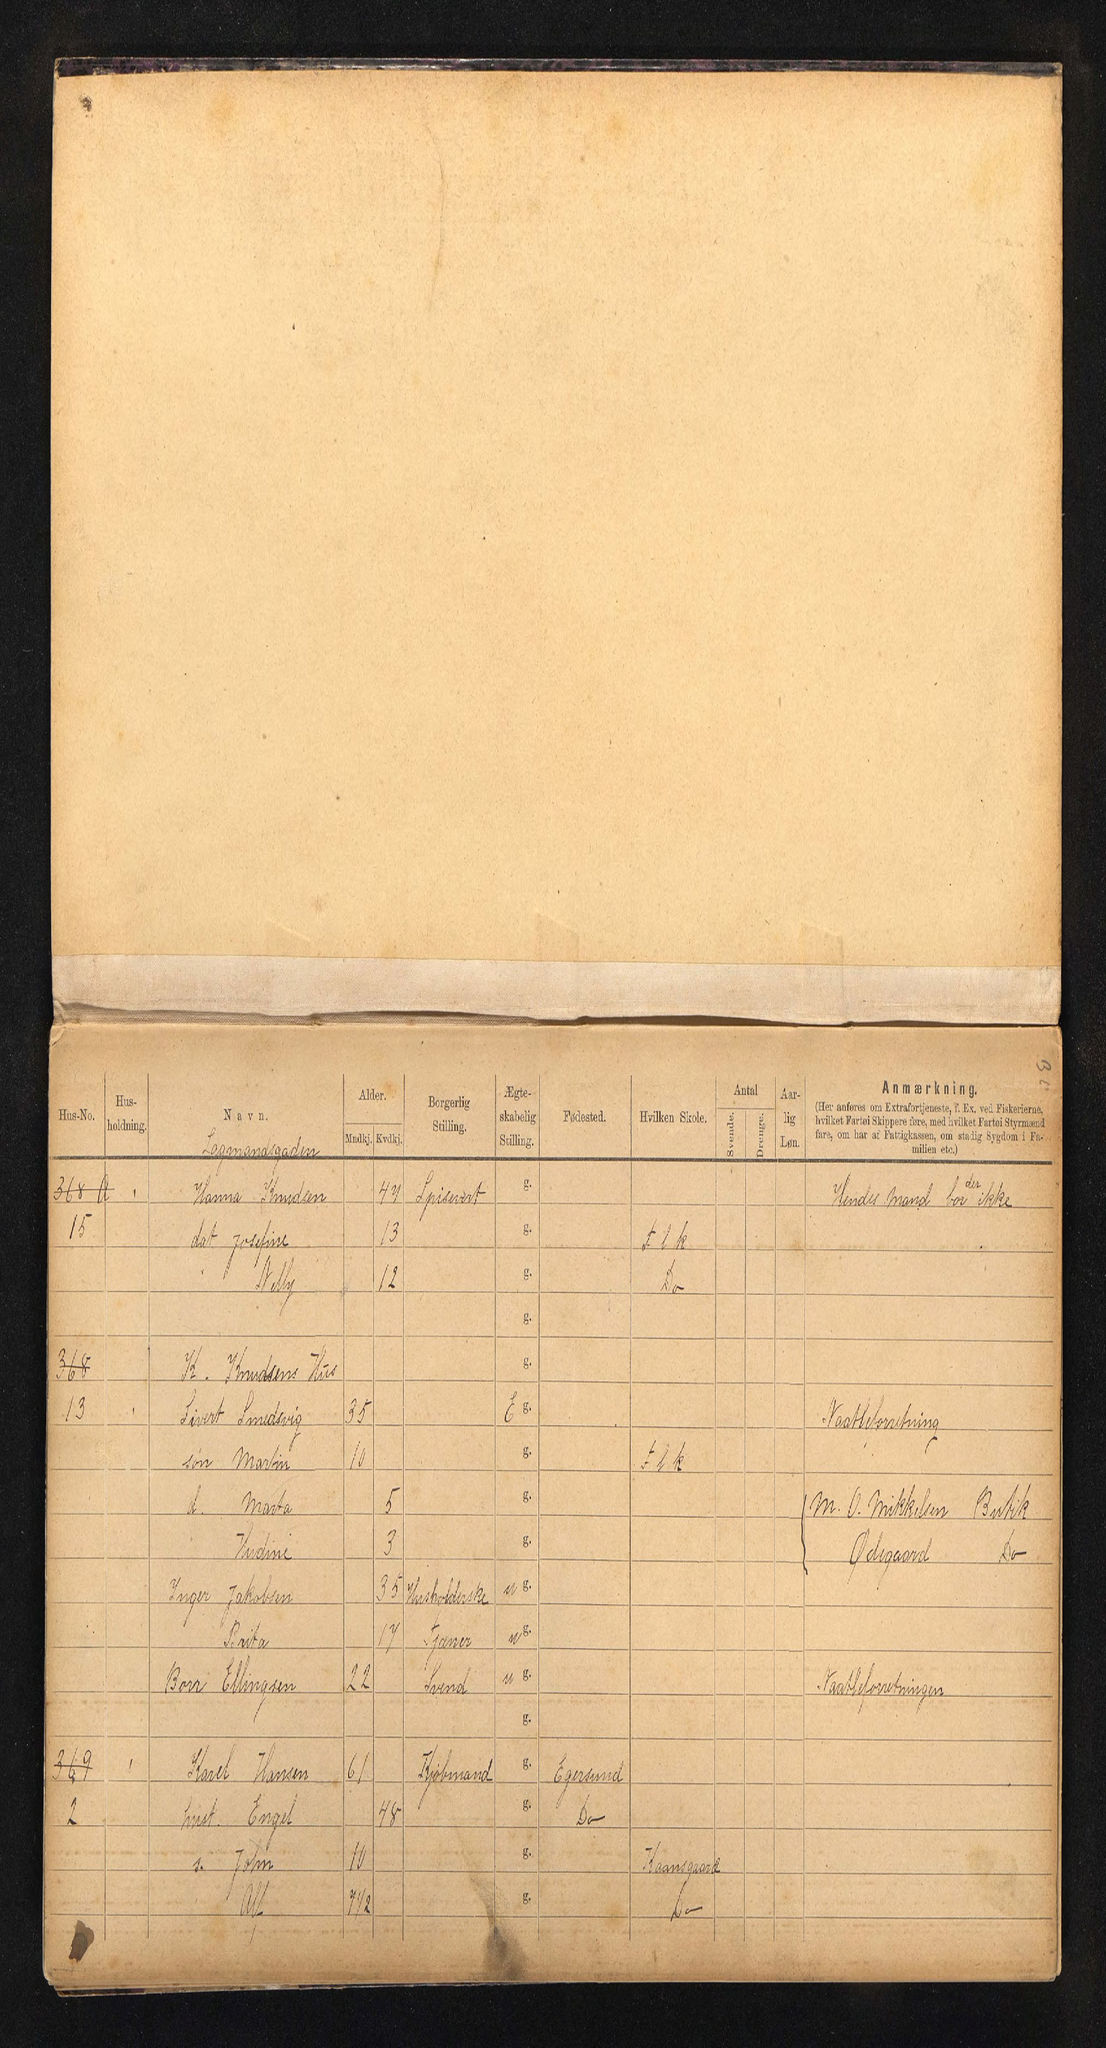 Hus-No. Hus-holdning. Navn. Alder. Mndkj. Kvdkj. Borgerlig Stilling. Ægte-skabelig Stilling. Fødested. Hvilken Skole. Antal Svende. Drenge. Aar-lig Løn. Anmærkning.
(Her anføres om Extrafortjeneste, f. Ex. ved Fiskerierne, hvilket Fartøi Skippere føre, med hvilket Fartøi Styrmænd fare, om har af Fattigkassen, om stadig Sygdom i Familien etc.)
Lagmandsgaden
368 A Hanna Knudsen 47 Spisevert g. Hendes Mand bor der ikke
15 dat Josefine 13 g. F l k
Nelly 12 g. Do
g.
368 K. Knudsens Hus g.
13 Sivert Smedsvig 35 E g.
søn Martin 10 g. F l k
d. Marta 5 g. M. O. Mikkelsen Butik
3 g. Ødegaard Do
Inger Jakobsen 35 Husholderske u g.
Brita 17 Tjener u g.
Ellingsen 22 Svend u g.
g.
369 Karel Hansen 61 Kjøbmand g. Egersund
2 hust. Engel 48 g. Do
s. John 10 g. Kaansgaard
Alf 7 1/2 g. Do